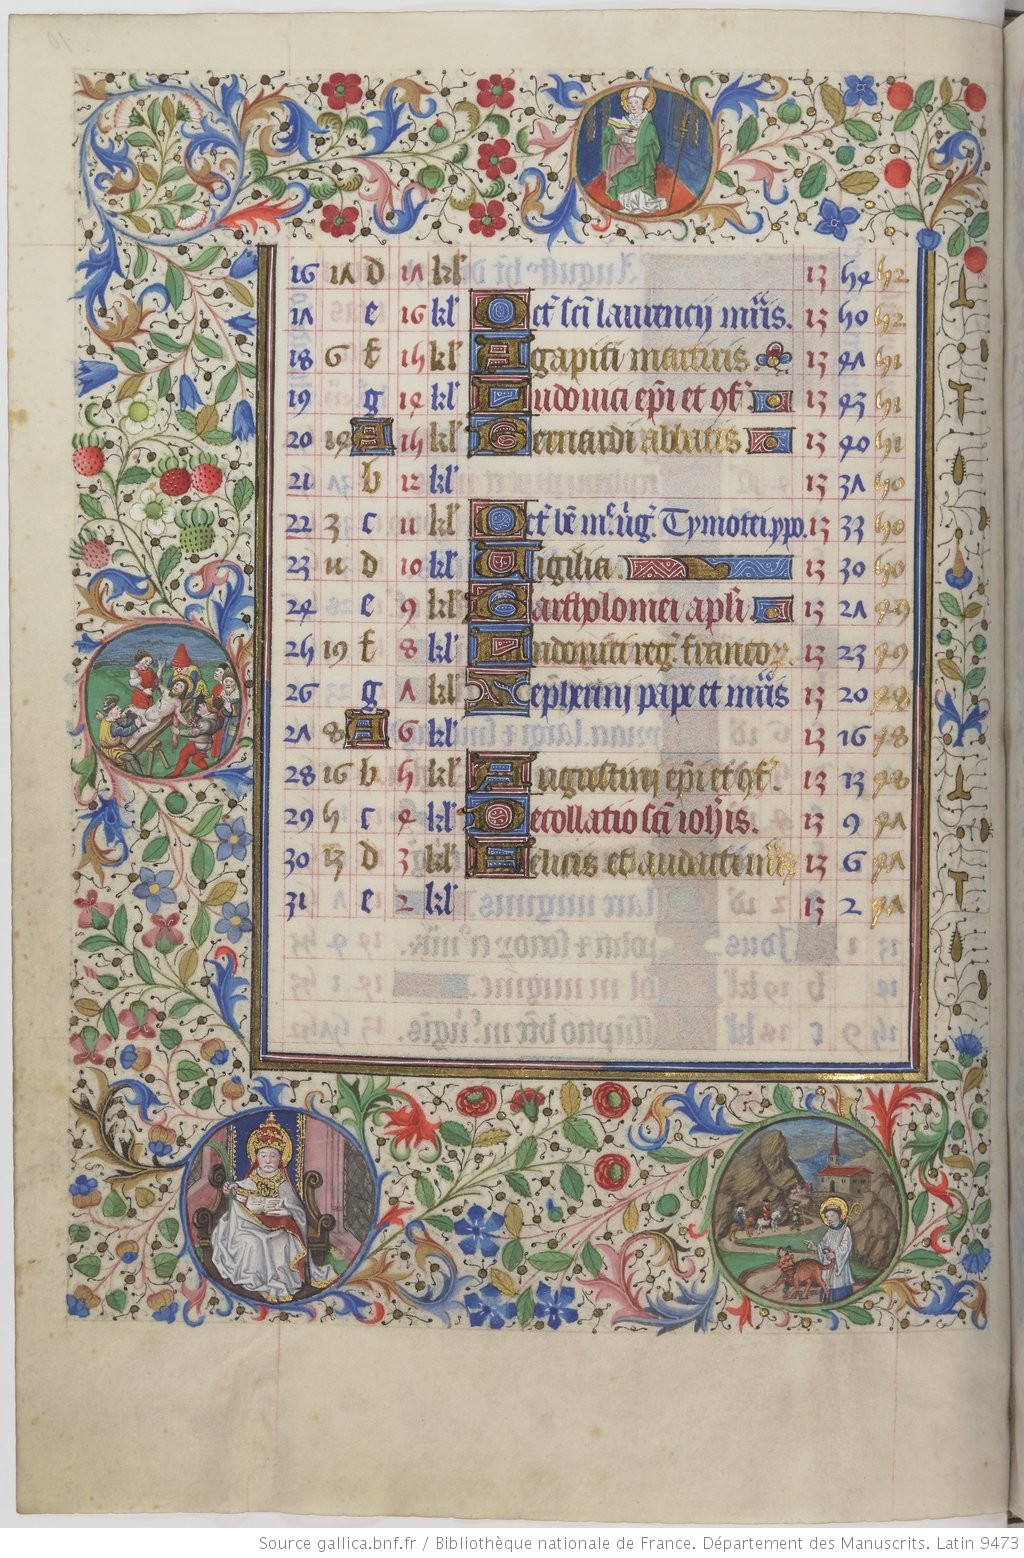 16 17 d 17 kl' 13 54 52
17 e 16 kl' Oct' sci laurencij mr̃is. 13 50 52
18 6 f 15 kl' Agapiti martiris 13 47 51
19 g 14 kl' Ludouici ep̃i et ɔf'. 13 43 51
20 14 A kl' Bernardi abbatis 13 40 51
21 b 12 kl' 13 37 50
22 3 c 11 kl' Oct' be' m̃ ũig'. Tymothei 13 33 50
23 11 d 10 kl' Uigilia 13 30 50
24 e 9 kl' Bartholomei apl̃i 13 27 49
25 19 f 8 kl' Ludouici reg' francoꝝ. 13 23 49
26 g 7 kl' Zepherini pape et mr̃is 13 20 48
27 8 A 6 kl' 13 16 48
28 16 b 5 kl' Augustini ep̃i et ɔf'. 13 13 48
29 5 c 4 kl' Decollatio sc̃i ioh̃is. 13 9 47
30 13 d 3 kl' Felicis et audacti mr̃is 13 6 47
31 e 2 kl' 13 2 47
Source gallica.bnf.fr / Bibliothèque nationale de France. Département des Manuscrits. Latin 9473